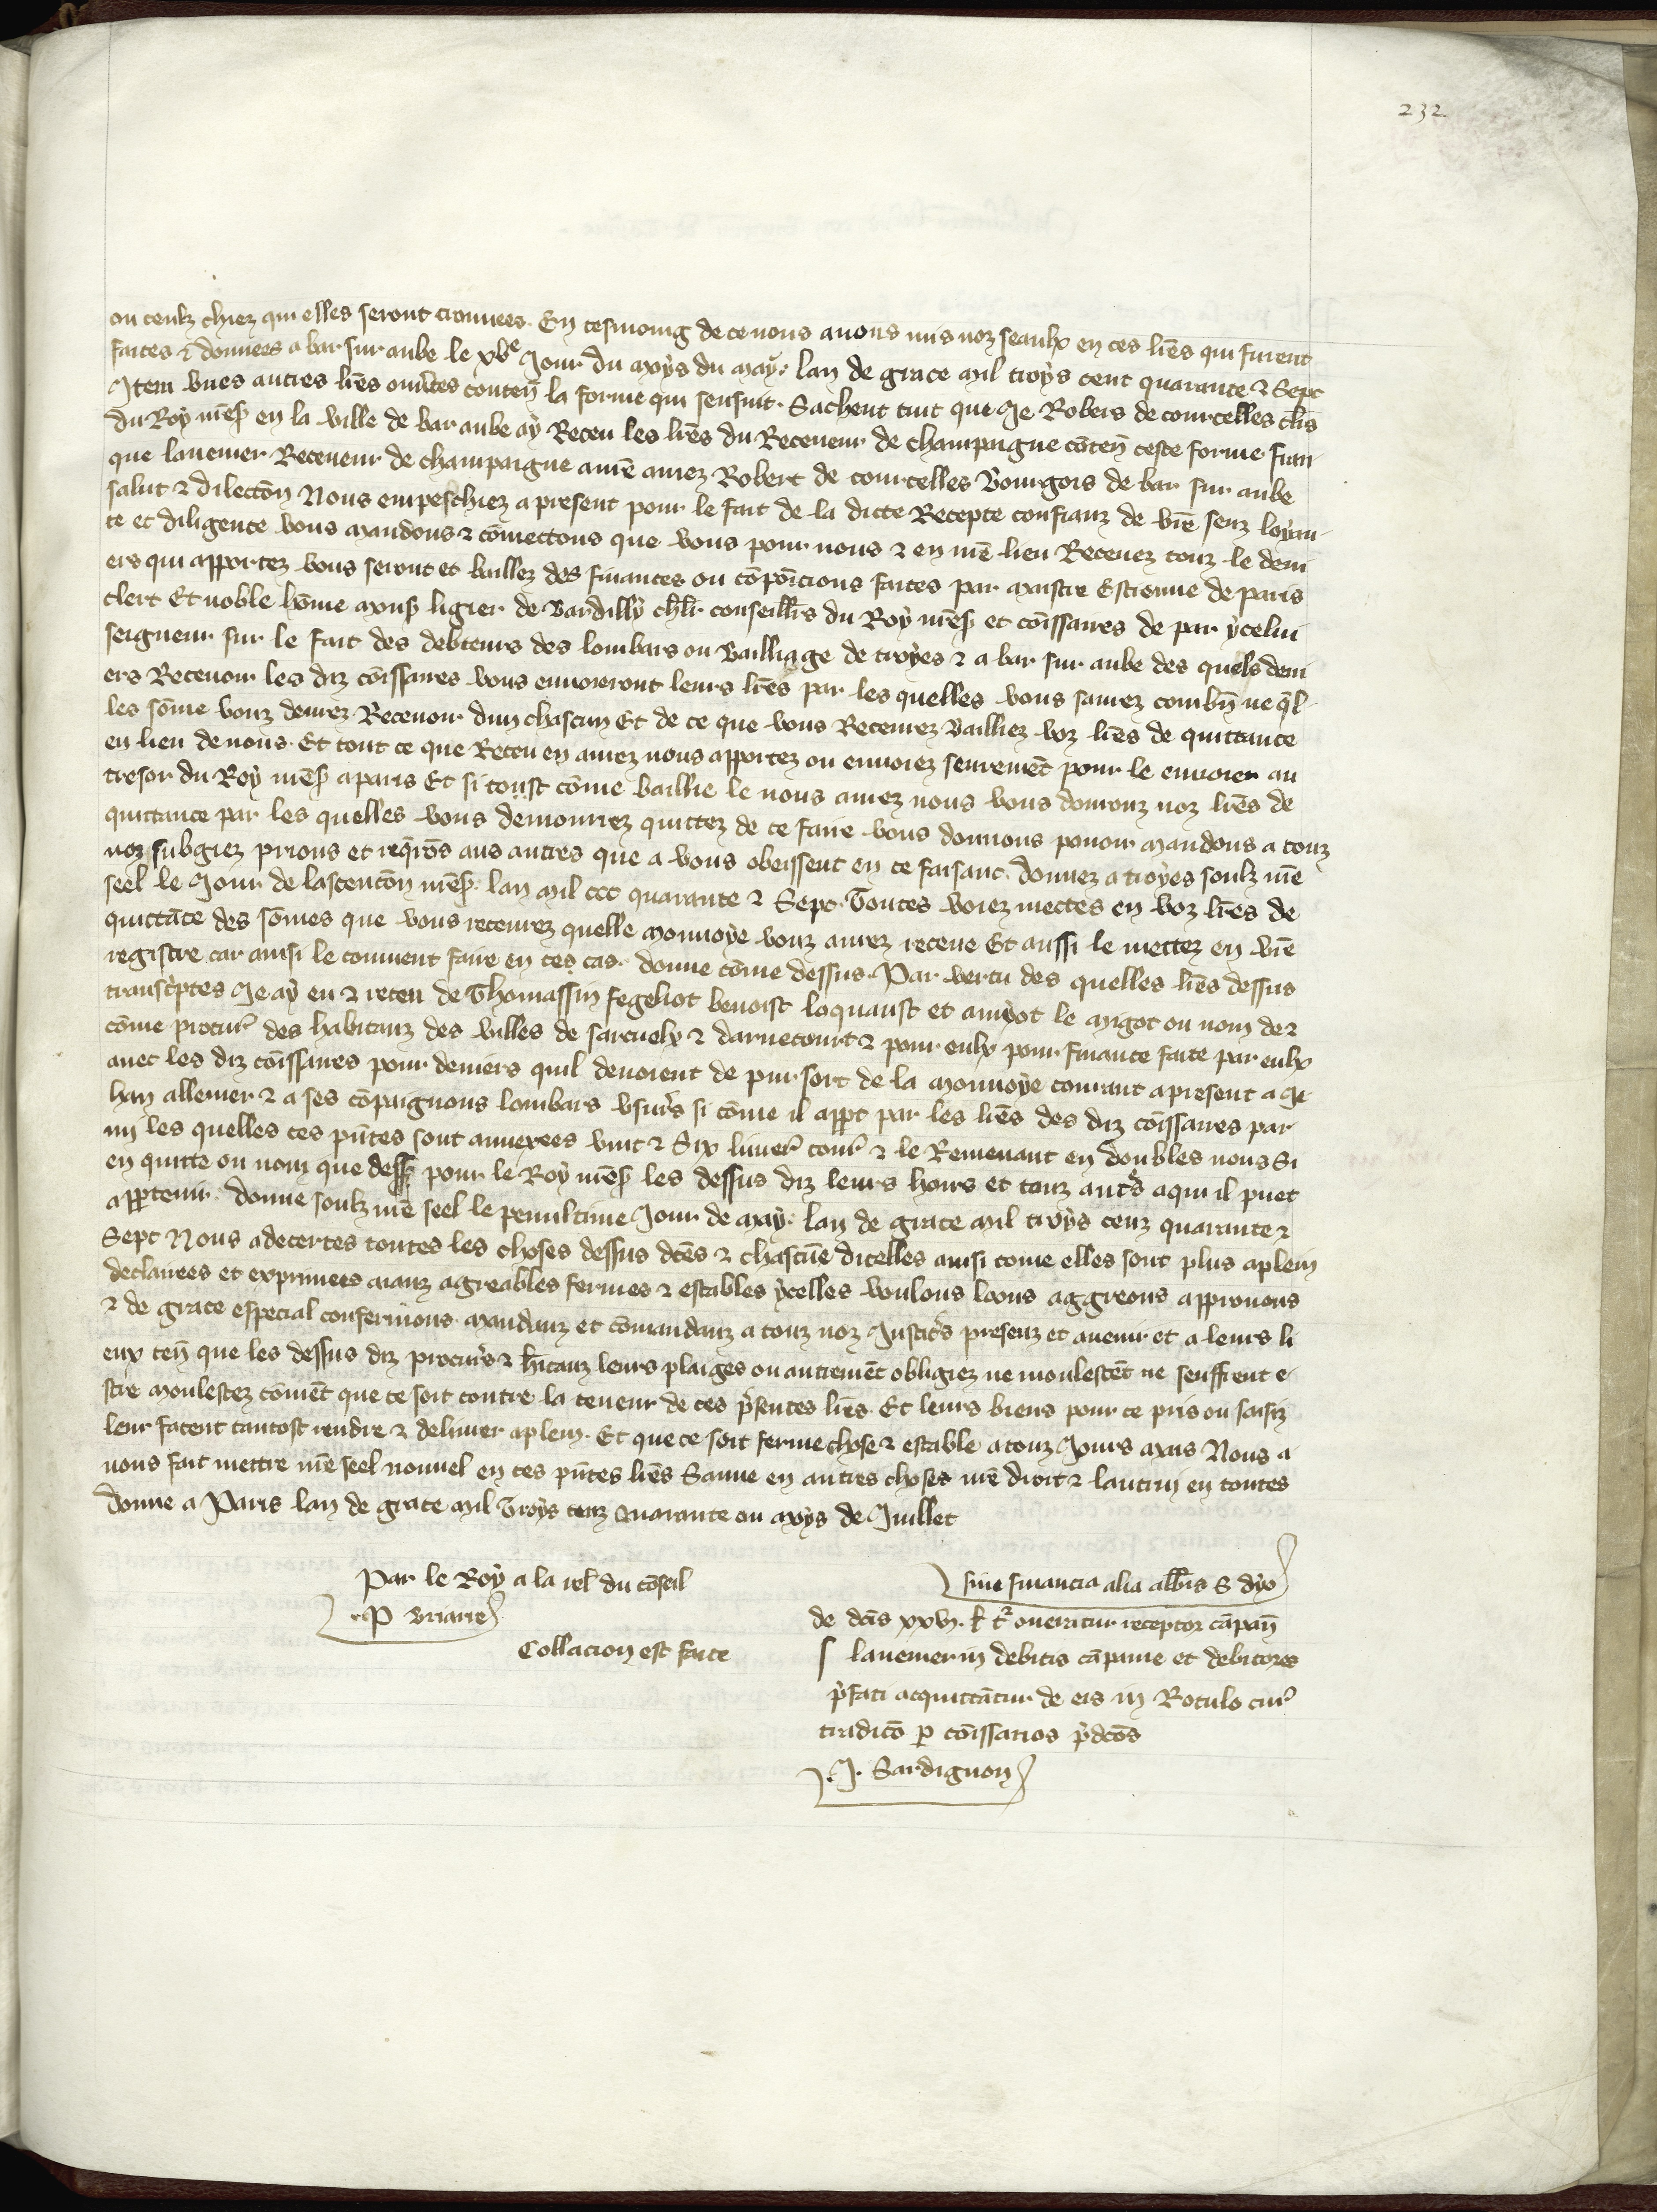 232
ou ceulz chiez qui elles seront trouvees. En tesmoing de ce nous avons mis noz seaulx en ces lr̄es qui furent
faites & donnees a bar sur aube le xvͤ Jour du moys du may. lan de grace mil troys cent quarante & Sept
Item unes autres lr̄es ouv̾tes conten̄ la forme qui sensuit. Sachent tuit que Je Robers de courcelles cl̄is
du Roy nr̄es̾ en la ville de bar aube ay Receu les lr̄es du Receueur de champaigne cōten̄ ceste forme fran
que lauemer Receueur de champaigne a nr̄e amez Robert de courcelles Bourgois de bar sur aube
salut & dilectōn Nous empeschiez a present pour le fait de la dicte Recepte confianz de vr̄e senz loyau
te et diligence vous mandons & cōmectons que vous pour nous & en nr̄e lieu Recevez touz le deni
ers qui apportez vous seront et baillez des finances ou cōpoīcions faites par maistre Estienne de paris
clerc Et noble hōme mons̾ ligier de Bardilly ch̄lr conseill̄rs du Roy nr̄es̾ et cōissaires de par ycelui
seigneur sur le fait des debteurs des lombars ou Bailliage de troyes & a bar sur aube des quels deni
ers Recevoir les diz cōissaires vous envoieront leurs lr̄es par les quelles vous saurez combn̄ ne q̄l
les sōme vouz devrez Recevoir dun chascun Et de ce que vous Recevrez Bailliez voz lr̄es de quittance
en lieu de nous. Et tout ce que Receu en aurez nous apportez ou envoiez seuremēt pour le envoier au
tresor du Roy nr̄es̾ a paris Et si toust cōme baillie le nous aurez nous vous donronz noz lr̄es de
quittance par les quelles vous demourrez quittez de ce faire vous donnons povoir mandons a touz
noz subgiez prions et req̄rōs aus autres que a vous obeissent en ce faisant. donnez a troyes soulz nr̄e
seel le Jour de lascenciōn nr̄es̾. lan mil ccc quarante & Sept. Toutes voiez mectes en voz lr̄es de
quittāce des sōmes que vous recevrez quelle monnoye vouz aurez receue Et aussi le mettez en vr̄e
registre car ainsi le convient faire en ces cas. donne cōme dessus. Par vertu des quelles lr̄es dessus
transc̾ptes Je ay eu & receu de Thomassin fegeliot benoist loquanst et amyot le migot ou nom de &
cōme procur̾ des habitanz des villes de sarcuelx & darnecourt & pour eulx pour finance faite par eulx
avec les diz cōissaires pour deniers quil devoient de pur sort de la monnoye courant a present a Je
han allemer & a ses cōpaignons lombars usur̾s si cōme il app̄t par les lr̄es des diz cōissaires par
mi les quelles ces pn̄tes sont annexees vint & Six livers̾ tour̾ & le Remenant en doubles nous Si
en quitte ou nom que dess̾ pour le Roy nr̄es̾ les dessus diz leurs hoirs et touz aut̾s a qui il puet
app̱tenir. donne soulz nr̄e seel le penultime Jour de may. lan de grace mil troys cenz quarante &
Sept Nous adecertes toutes les choses dessus dc̄es & chascūe dicelles ainsi come elles sont plus aplein
declarees et exprimees aianz agreables fermes & estables ycelles voulons loons aggreons approuvons
& de grace especial confermons. mandanz et cōmandanz a touz noz Justic̾s presenz et avenir et a leurs li
eux ten̄ que les dessus diz procur̾s & h̄itanz leurs plaiges ou autremēt obligiez ne moulestēt ne seuffrent e
stre moulestez cōmēt que ce soit contre la teneur de ces p̾sentes lr̄es. Et leurs biens pour ce pris ou saisiz
leur facent tantost rendre & delivrer aplein. Et que ce soit ferme chose & estable a touz Jours mais Nous a
vons fait mettre nr̄e seel nouvel en ces pn̄tes lr̄es Sauve en autres choses nr̄e droit & lautrui en toutes
donne a Paris lan de grace mil Troys cenz Quarante ou moys de Juillet
Par le Roy a la rel̄ du cōseil
.P Briarre
Collacion est faite
sine financia alia alb̄is S dyo
de dc̄is xxvj. l̄ t̾ oneratur receptor cāpan̄
lauemer in debitis cāpanie et debitores
p̾fati acquittātur de eis in Rotulo cur̾
tradito p̱ cōissarios p̾dc̄os
.J. Sardignon